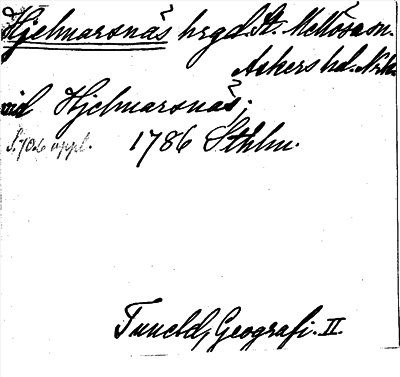 Hjelmarsnäs hrgd. St. Mellösa sn.
Askers hd. Nrke
vid Hjelmarsnäs;
S. 702 uppl. 1786 Sthlm.
Tuneld, Geografi. II.